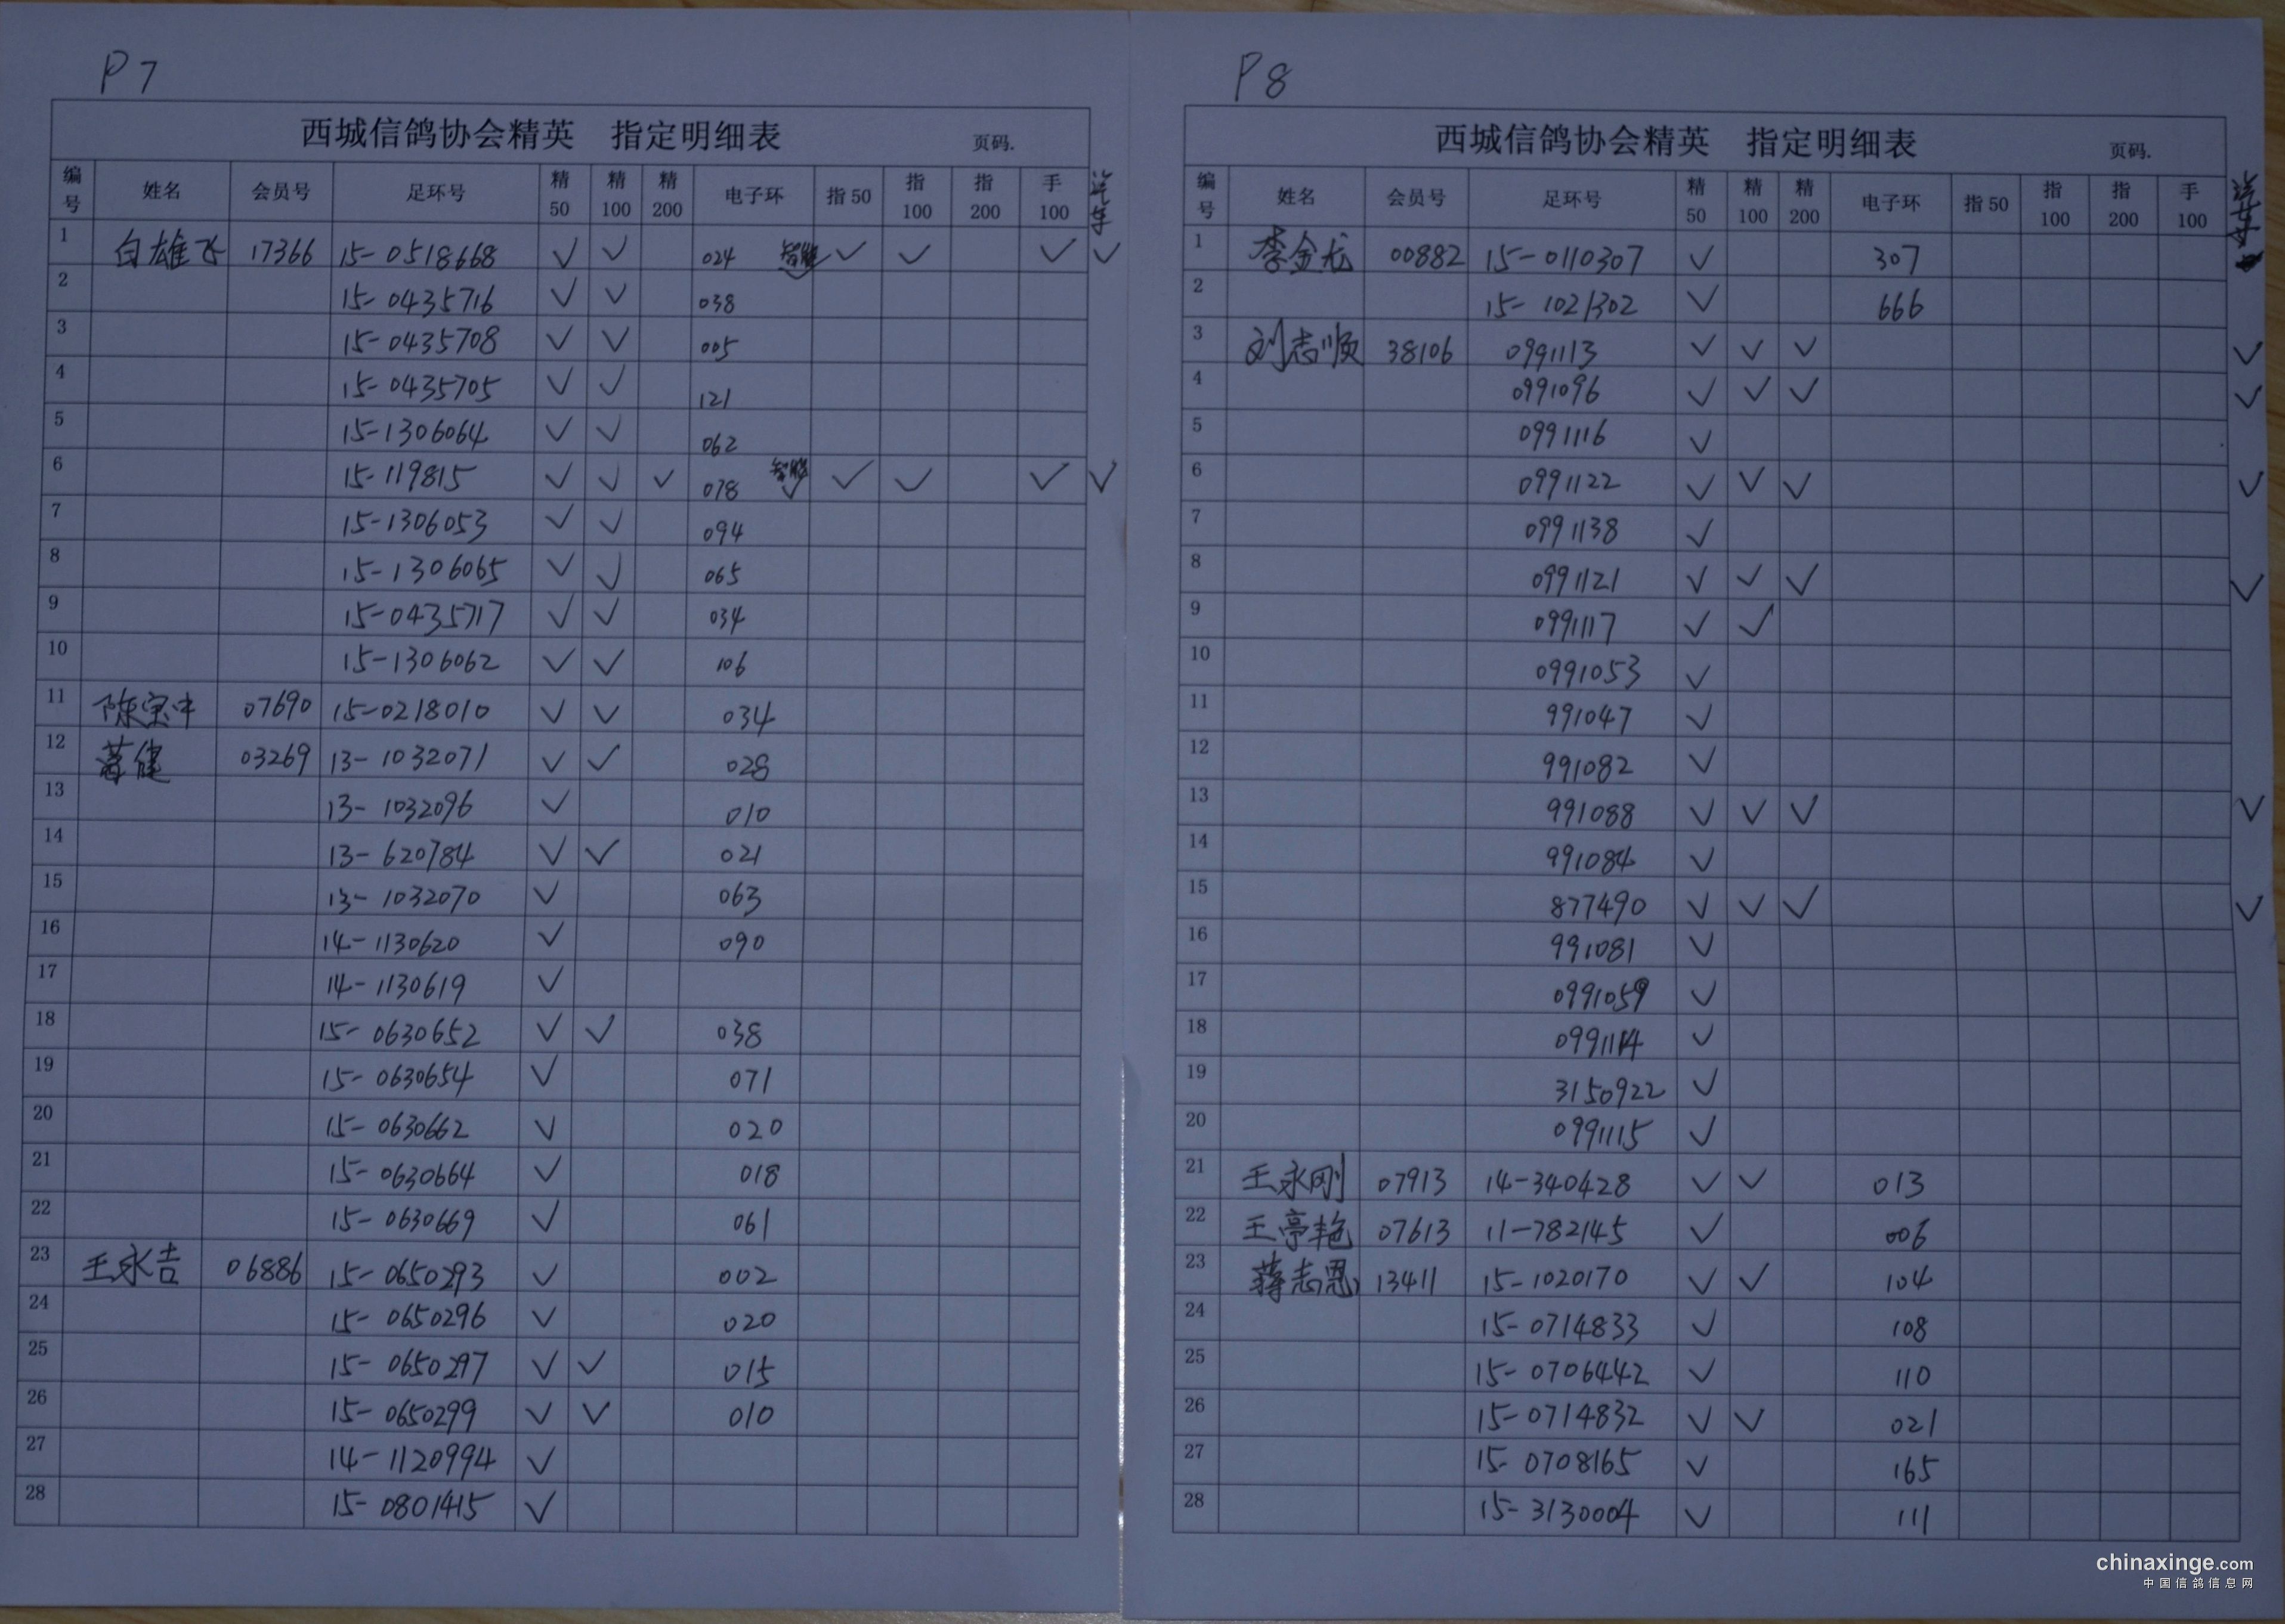 P7
西城信鸽协会精英 指定明细表 页码.
编号 姓名 会员号 足环号 精50 精100 精200 电子环 指50 指100 指200 手100 汽车
1 白雄飞 17366 15-0518668 √ √ 024 √ √ √ √
2 15-0435716 √ √ 038
3 15-0435708 √ √ 005
4 15-0435705 √ √ 121
5 15-1306064 √ √ 062
6 15-119815 √ √ √ 078 √ √ √ √
7 15-1306053 √ √ 094
8 15-1306065 √ √ 065
9 15-0435717 √ √ 034
10 15-1306062 √ √ 106
11 陈宝中 07690 15-0218010 √ √ 034
12 健 03269 13-1032071 √ √ 028
13 13-1032096 √ 010
14 13-620784 √ √ 021
15 13-1032070 √ 063
16 14-1130620 √ 090
17 14-1130619 √
18 15-0630652 √ √ 038
19 15-0630654 √ 071
20 15-0630662 √ 020
21 15-0630664 √ 018
22 15-0630669 √ 061
23 王永吉 06886 15-0650293 √ 002
24 15-0650296 √ 020
25 15-0650297 √ √ 015
26 15-0650299 √ √ 010
27 14-1120994 √
28 15-0801415 √
P8
西城信鸽协会精英 指定明细表 页码.
编号 姓名 会员号 足环号 精50 精100 精200 电子环 指50 指100 指200 手100 汽车
1 李金龙 00882 15-0110307 √ 307
2 15-1021302 √ 666
3 刘志顺 38106 0991113 √ √ √ √
4 0991096 √ √ √ √
5 0991116 √
6 0991122 √ √ √ √
7 0991138 √
8 0991121 √ √ √ √
9 0991117 √ √
10 0991053 √
11 991047 √
12 991082 √
13 991088 √ √ √ √
14 991084 √
15 877490 √ √ √ √
16 991081 √
17 0991059 √
18 0991114 √
19 3150922 √
20 0991115 √
21 王永刚 07913 14-340428 √ √ 013
22 王亭艳 07613 11-782145 √ 006
23 蒋志恩 13411 15-1020170 √ √ 104
24 15-0714833 √ 108
25 15-0706442 √ 110
26 15-0714832 √ √ 021
27 15-0708165 √ 165
28 15-3130004 √ 111
chinaxinge.com
中国信鸽信息网